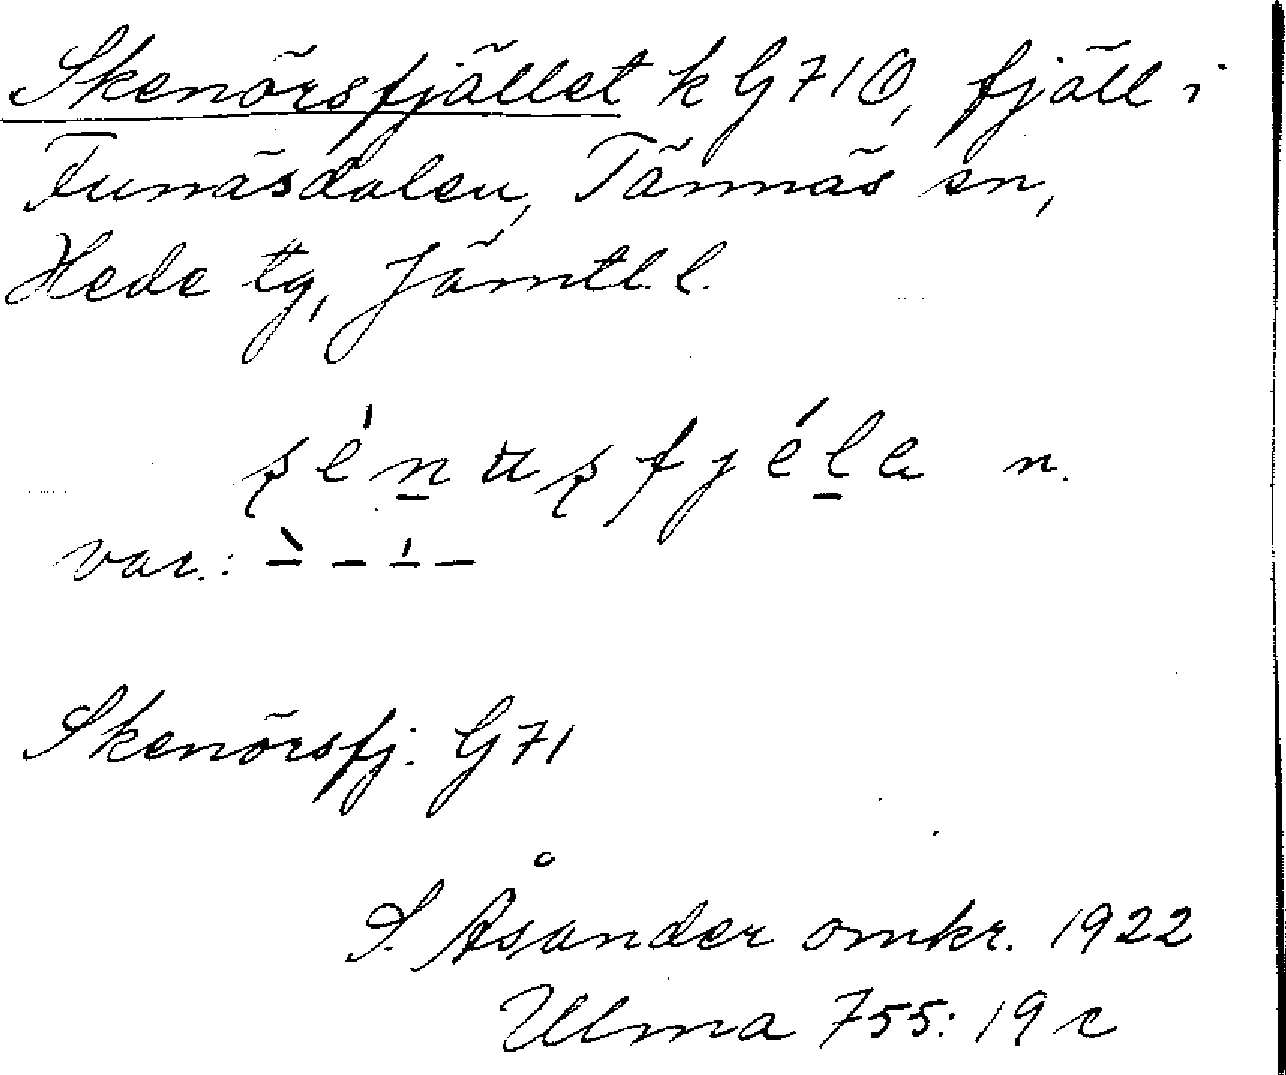 Skenörsfjället k G71Ö, fjäll i
Funäsdalen, Tännäs sn,
Hede tg, Jämtl. l.
n.
var.:
Skenörsfj. G71
S. Åsander omkr. 1922
Ulma 755:19c